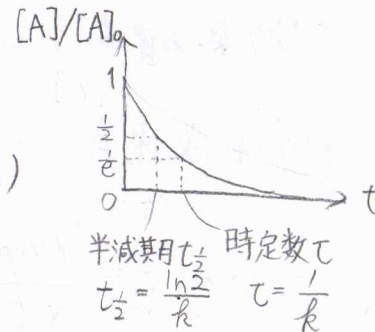 [A]/[A]₀
1
1/2
1/e
0
t
)
半減期 t½ 時定数 τ
t½ = ln2/k τ = 1/k